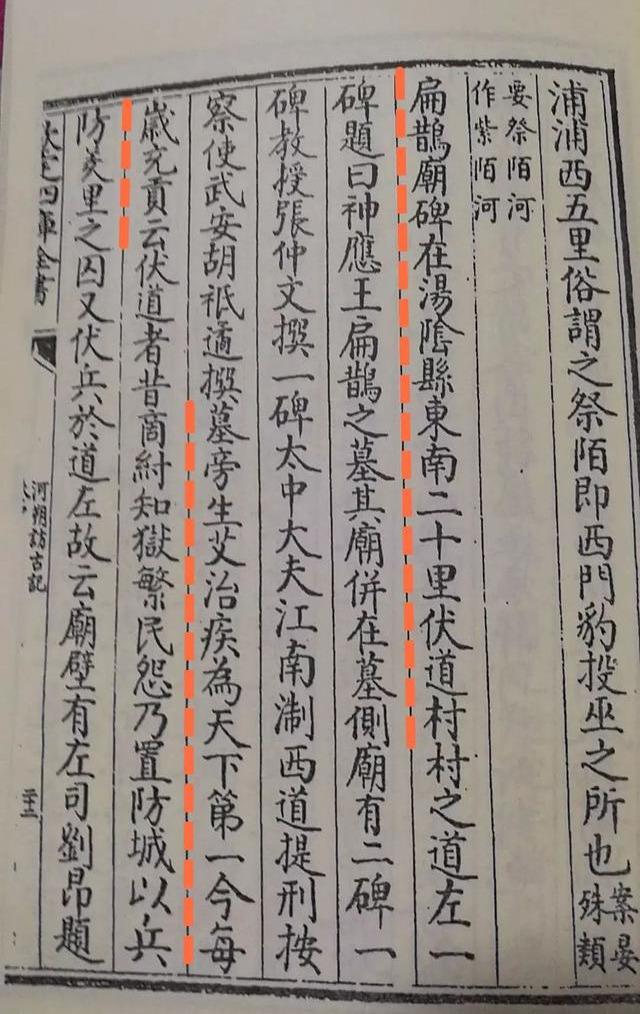 浦浦西五里俗謂之祭陌即西門豹投巫之所也案晏殊類
要祭陌河作紫陌河
扁鵲廟碑在湯陰縣東南二十里伏道村村之道左一
碑題曰神應王扁鵲之墓其廟併在墓側廟有二碑一
碑教授張仲文撰一碑太中大夫江南淛西道提刑按
察使武安胡祗遹撰墓旁生艾治疾為天下第一今每
歲充貢云伏道者昔商紂知獄繁民怨乃置防城以兵
防羑里之囚又伏兵於道左故云廟壁有左司劉昂題
欽定四庫全書
河朔訪古記
二十三